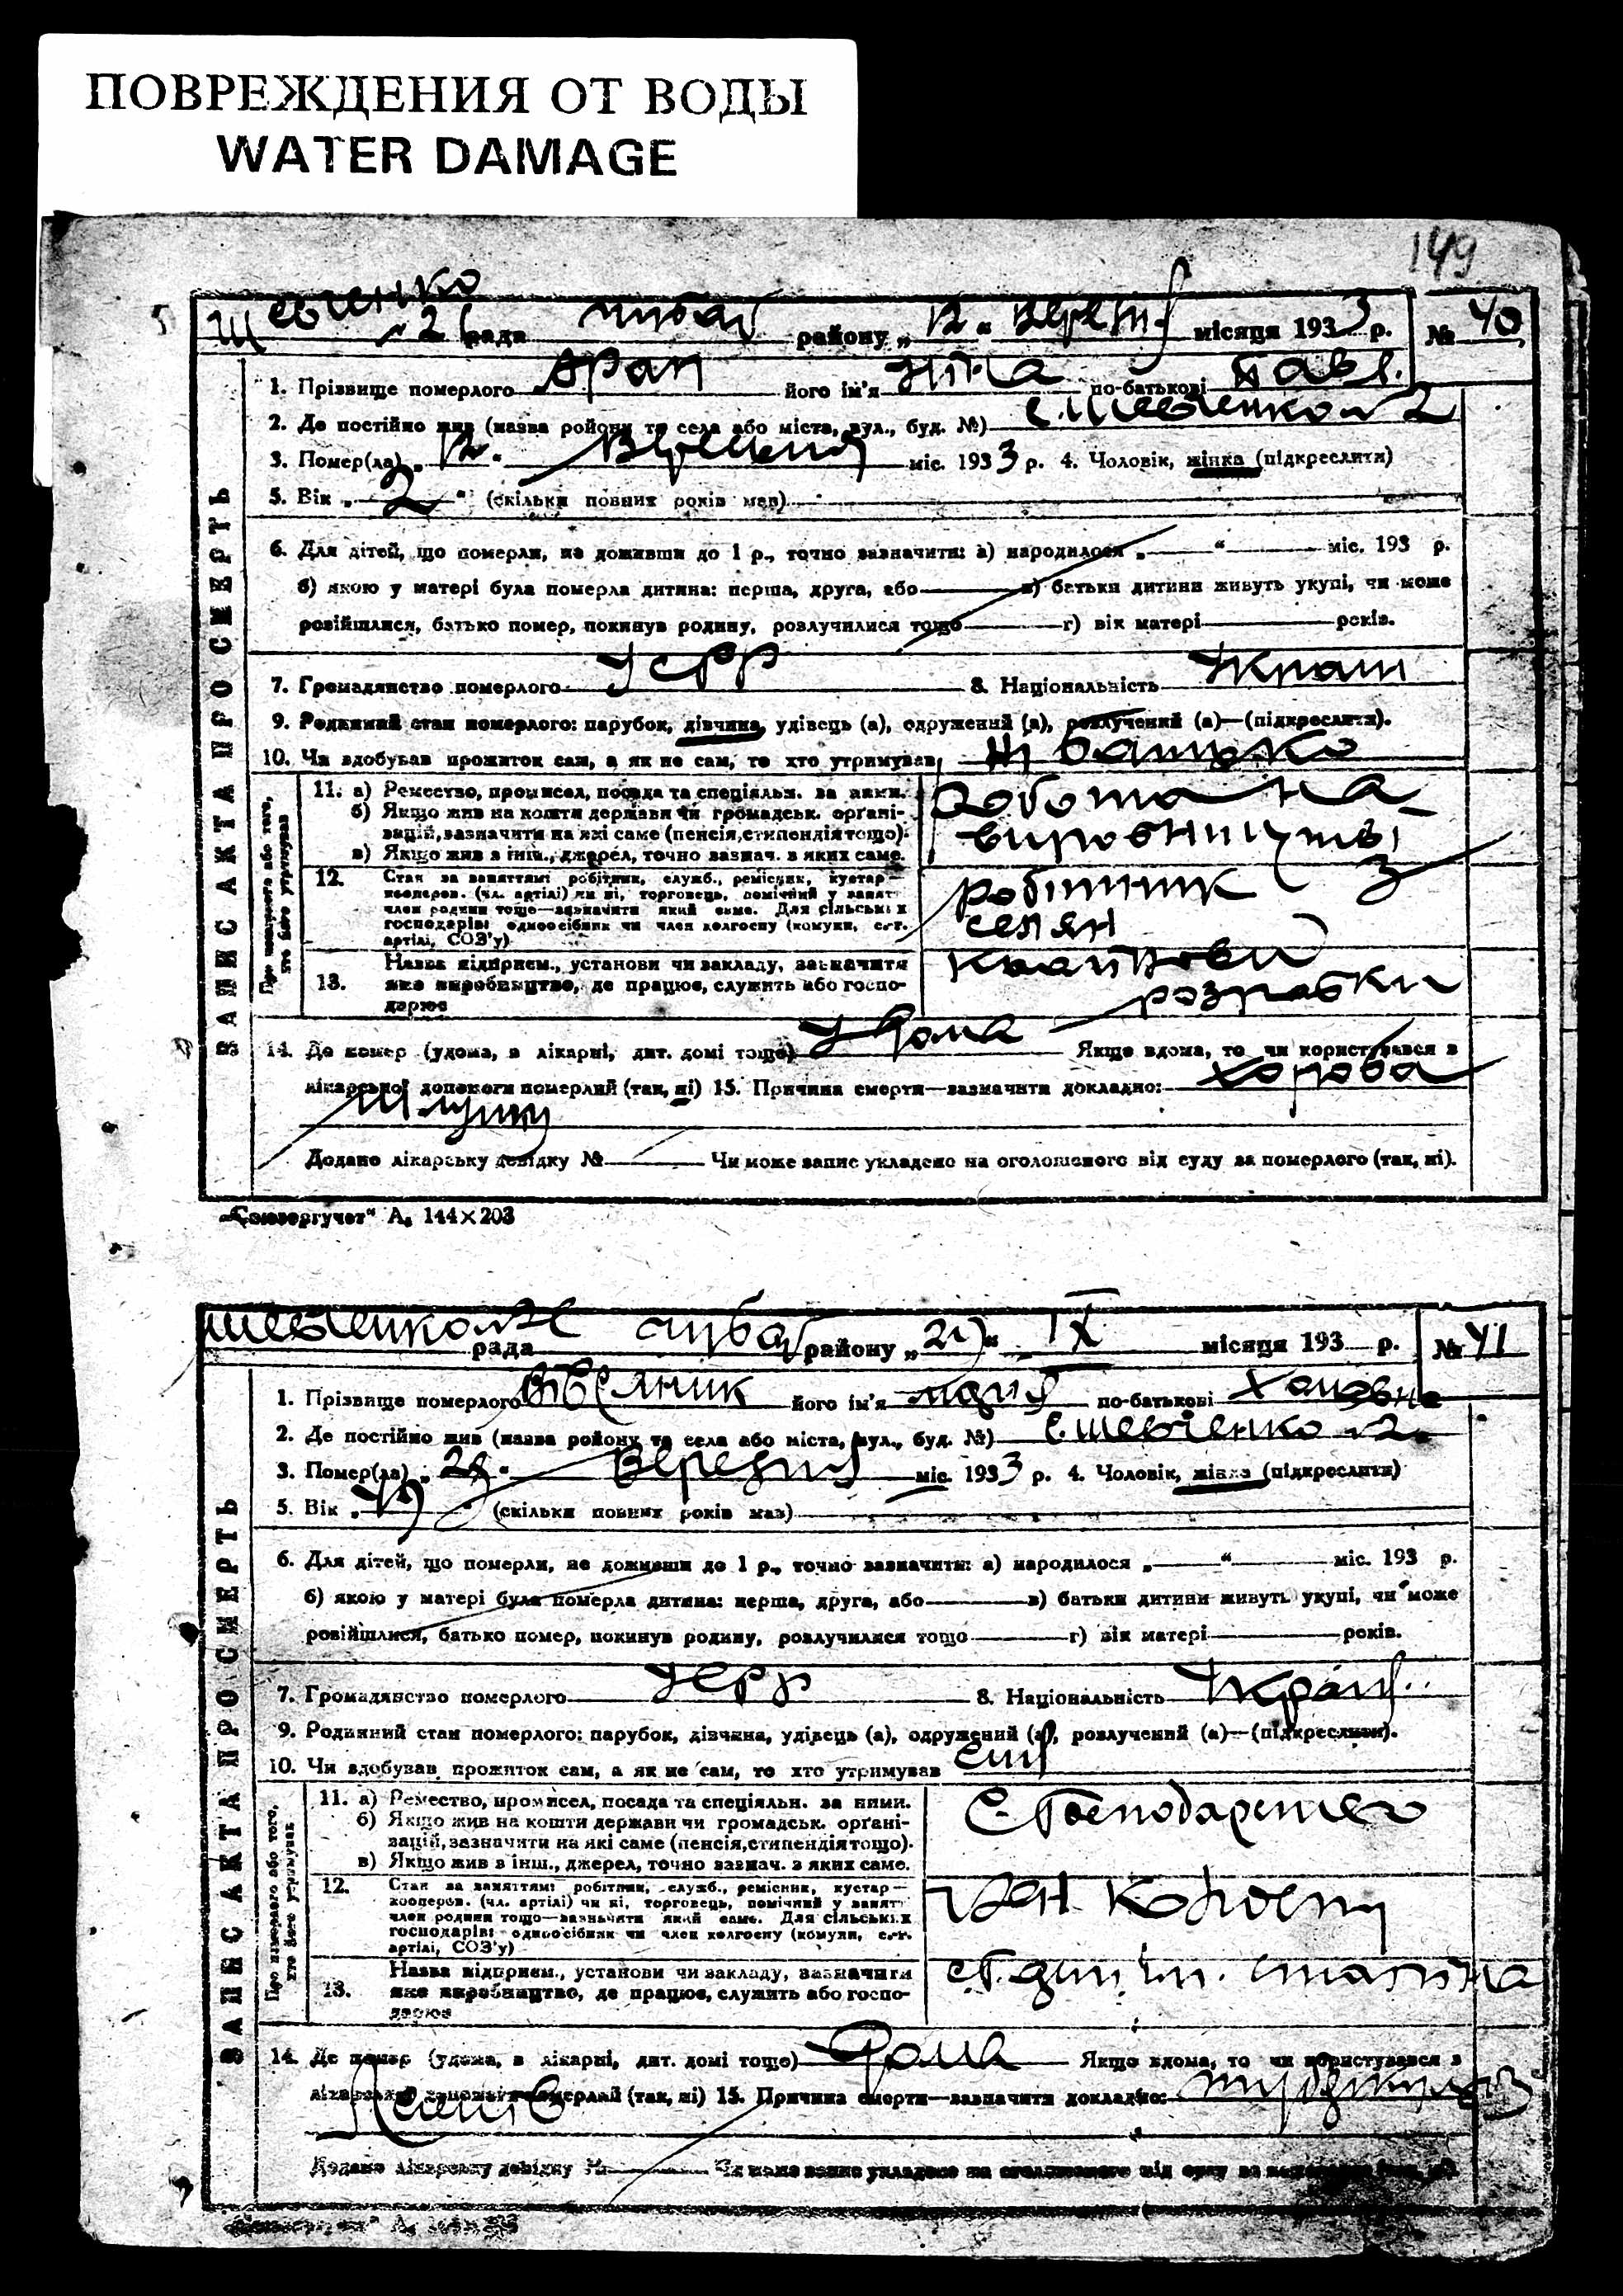 ПОВРЕЖДЕНИЯ ОТ ВОДЫ
WATER DAMAGE
149
Шевченко №2 рада району „12“ місяця 1933 р. № 40
ЗАПИС АКТА ПРО СМЕРТЬ
1. Прізвище померлого його ім'я Ніна по-батькові Павл.
2. Де постійно жив (назва району та села або міста, вул., буд. №) с. Шевченко №2
3. Помер(ла) „12“ Вересня міс. 1933 р. 4. Чоловік, жінка (підкреслити)
5. Вік „2“ (скільки повних років мав)
6. Для дітей, що померли, не доживши до 1 р., точно зазначити: а) народилося „ “ міс. 193 р.
б) якою у матері була померла дитина: перша, друга, або в) батьки дитини живуть укупі, чи може
розійшлися, батько помер, покинув родину, розлучилися тощо г) вік матері років.
7. Громадянство померлого УСРР 8. Національність
9. Родинний стан померлого: парубок, дівчина, удівець (а), одружений (а), розлучений (а)—(підкреслити).
10. Чи здобував прожиток сам, а як не сам, то хто утримував батько
Про померлого або того, хто його утримував
11. а) Ремество, промисел, посада та спеціяльн. за ними.
б) Якщо жив на кошти держави чи громадськ. органі-
зацій, зазначити на які саме (пенсія, стипендія тощо).
в) Якщо жив з інш., джерел, точно зазнач. з яких саме.
робота на
виробництві
12. Стан за заняттям: робітник, служб., ремісник, кустар—
кооперов. (чл. артілі) чи ні, торговець, помічний у занят.
член родини тощо—зазначити який саме. Для сільських
господарів: одноосібник чи член колгоспу (комуни, с.-г.
артілі, СОЗ'у)
робітник з
селян
13. Назва підприєм., установи чи закладу, зазначити
яке виробництво, де працює, служить або госпо-
дарює
розробки
14. Де помер (удома, в лікарні, дит. домі тощо) удома Якщо вдома, то чи користувався з
лікарської допомоги померлий (так, ні) 15. Причина смерти—зазначити докладно: хороба
Додано лікарську довідку № Чи може запис укладено на оголошеного від суду за померлого (так, ні).
„Союзоргучет“ А₅ 144×203
Шевченко №2 рада району „29“ IX місяця 193 р. № 41
ЗАПИС АКТА ПРО СМЕРТЬ
1. Прізвище померлого його ім'я Марія по-батькові
2. Де постійно жив (назва району та села або міста, вул., буд. №) с. Шевченко №2
3. Помер(ла) „29“ Вересня міс. 1933 р. 4. Чоловік, жінка (підкреслити)
5. Вік „ “ (скільки повних років мав)
6. Для дітей, що померли, не доживши до 1 р., точно зазначити: а) народилося „ “ міс. 193 р.
б) якою у матері була померла дитина: перша, друга, або в) батьки дитини живуть укупі, чи може
розійшлися, батько помер, покинув родину, розлучилися тощо г) вік матері років.
7. Громадянство померлого УСРР 8. Національність Украін.
9. Родинний стан померлого: парубок, дівчина, удівець (а), одружений (а), розлучений (а)—(підкреслити).
10. Чи здобував прожиток сам, а як не сам, то хто утримував
Про померлого або того, хто його утримував
11. а) Ремество, промисел, посада та спеціяльн. за ними.
б) Якщо жив на кошти держави чи громадськ. органі-
зацій, зазначити на які саме (пенсія, стипендія тощо).
в) Якщо жив з інш., джерел, точно зазнач. з яких саме.
12. Стан за заняттям: робітник, служб., ремісник, кустар—
кооперов. (чл. артілі) чи ні, торговець, помічний у занят.
член родини тощо—зазначити який саме. Для сільських
господарів: одноосібник чи член колгоспу (комуни, с.-г.
артілі, СОЗ'у)
Член колгоспу
13. Назва підприєм., установи чи закладу, зазначити
яке виробництво, де працює, служить або госпо-
дарює
Сталіна
14. Де помер (удома, в лікарні, дит. домі тощо) Дома Якщо вдома, то чи користувався з
лікарської допомоги померлий (так, ні) 15. Причина смерти—зазначити докладно: туберкульоз
Легенів
Додано лікарську довідку № Чи може запис укладено на оголошеного від суду за